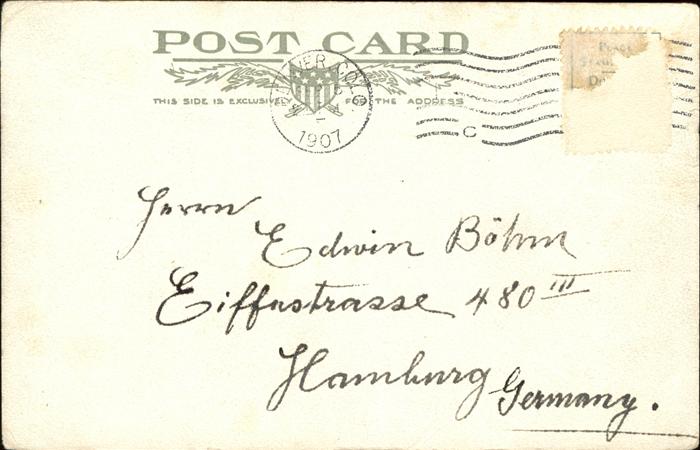 POST CARD
THIS SIDE IS EXCLUSIVELY FOR THE ADDRESS
COLO.
1907
C
Place
Herrn
Edwin Böhm
Eiffestrasse 480 III
Hamburg Germany.